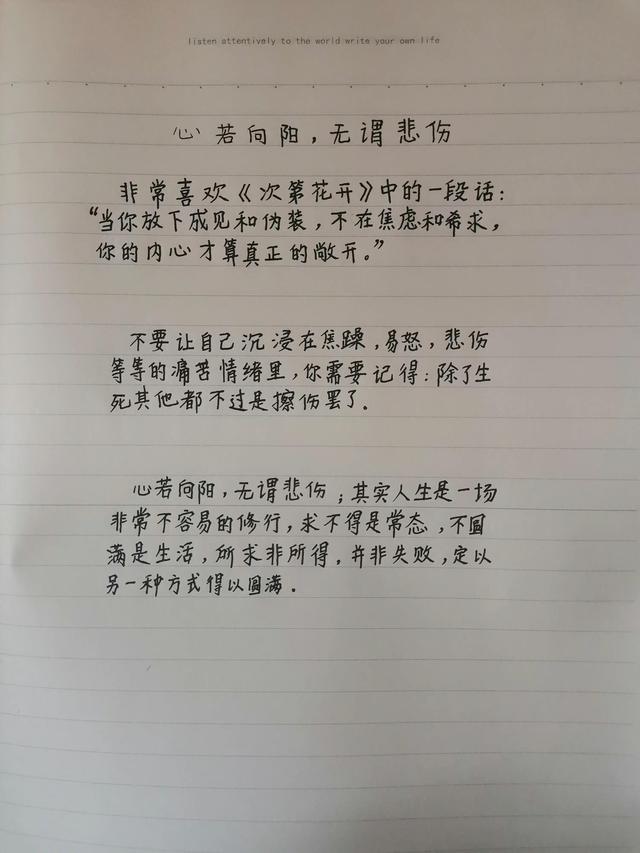 listen attentively to the world write your own life
心若向阳，无谓悲伤
非常喜欢《次第花开》中的一段话：
“当你放下成见和伪装，不在焦虑和希求，
你的内心才算真正的敞开。”
不要让自己沉浸在焦躁，易怒，悲伤
等等的痛苦情绪里，你需要记得：除了生
死其他都不过是擦伤罢了.
心若向阳，无谓悲伤；其实人生是一场
非常不容易的修行，求不得是常态，不圆
满是生活，所求非所得，并非失败，定以
另一种方式得以圆满.